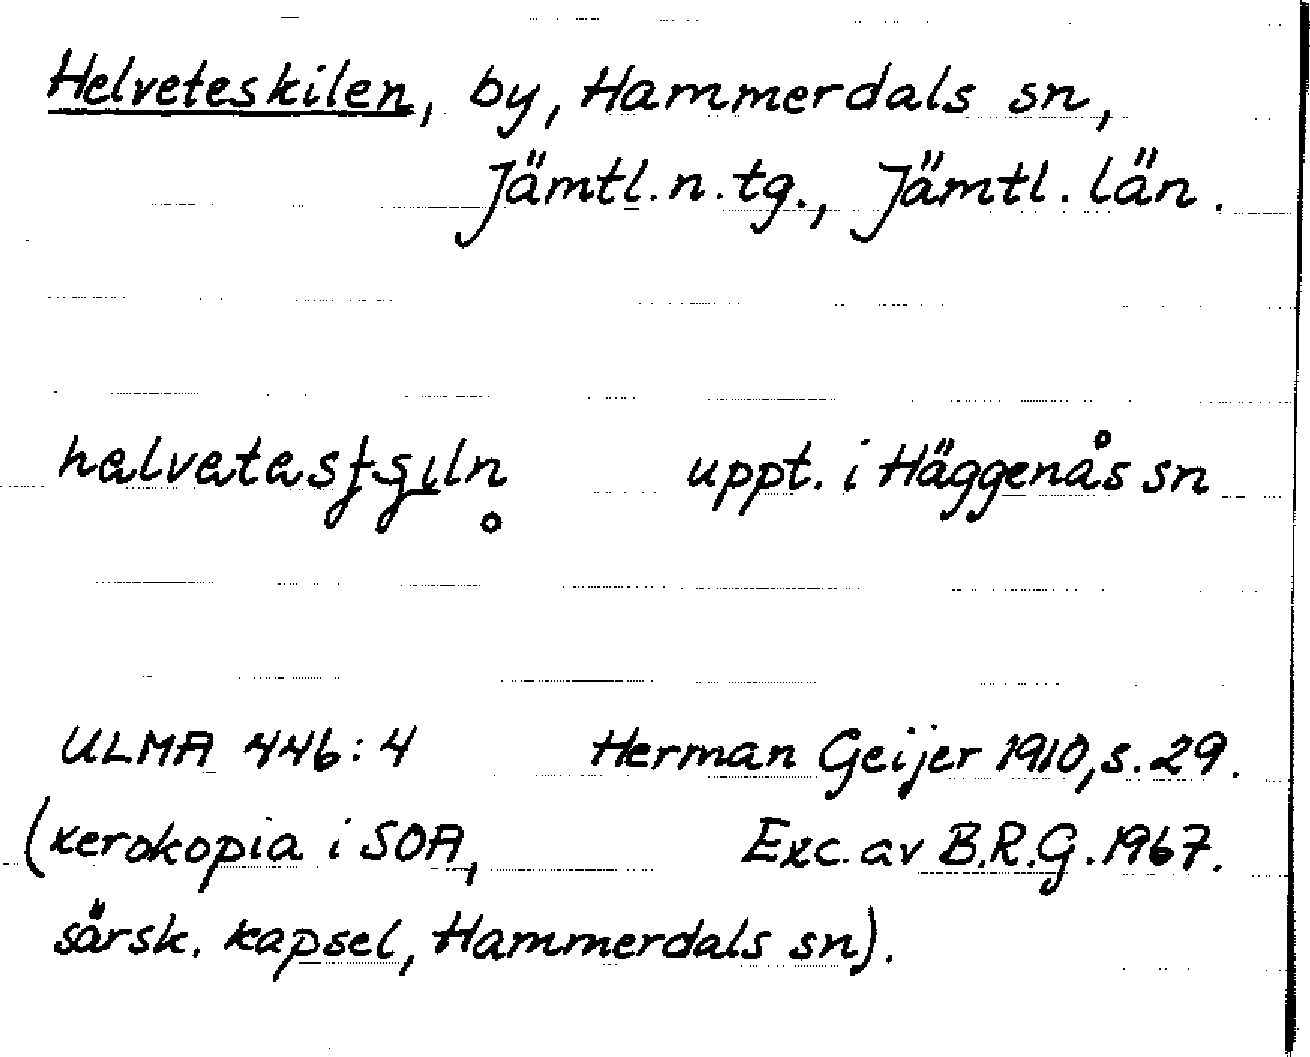 Helveteskilen, by, Hammerdals sn,
Jämtl. n. tg., Jämtl. län.
uppt. i Häggenås sn
ULMA 446:4 Herman Geijer 1910, s. 29.
(xerokopia i SOA, Exc. av B.R.G. 1967.
särsk. kapsel, Hammerdals sn).